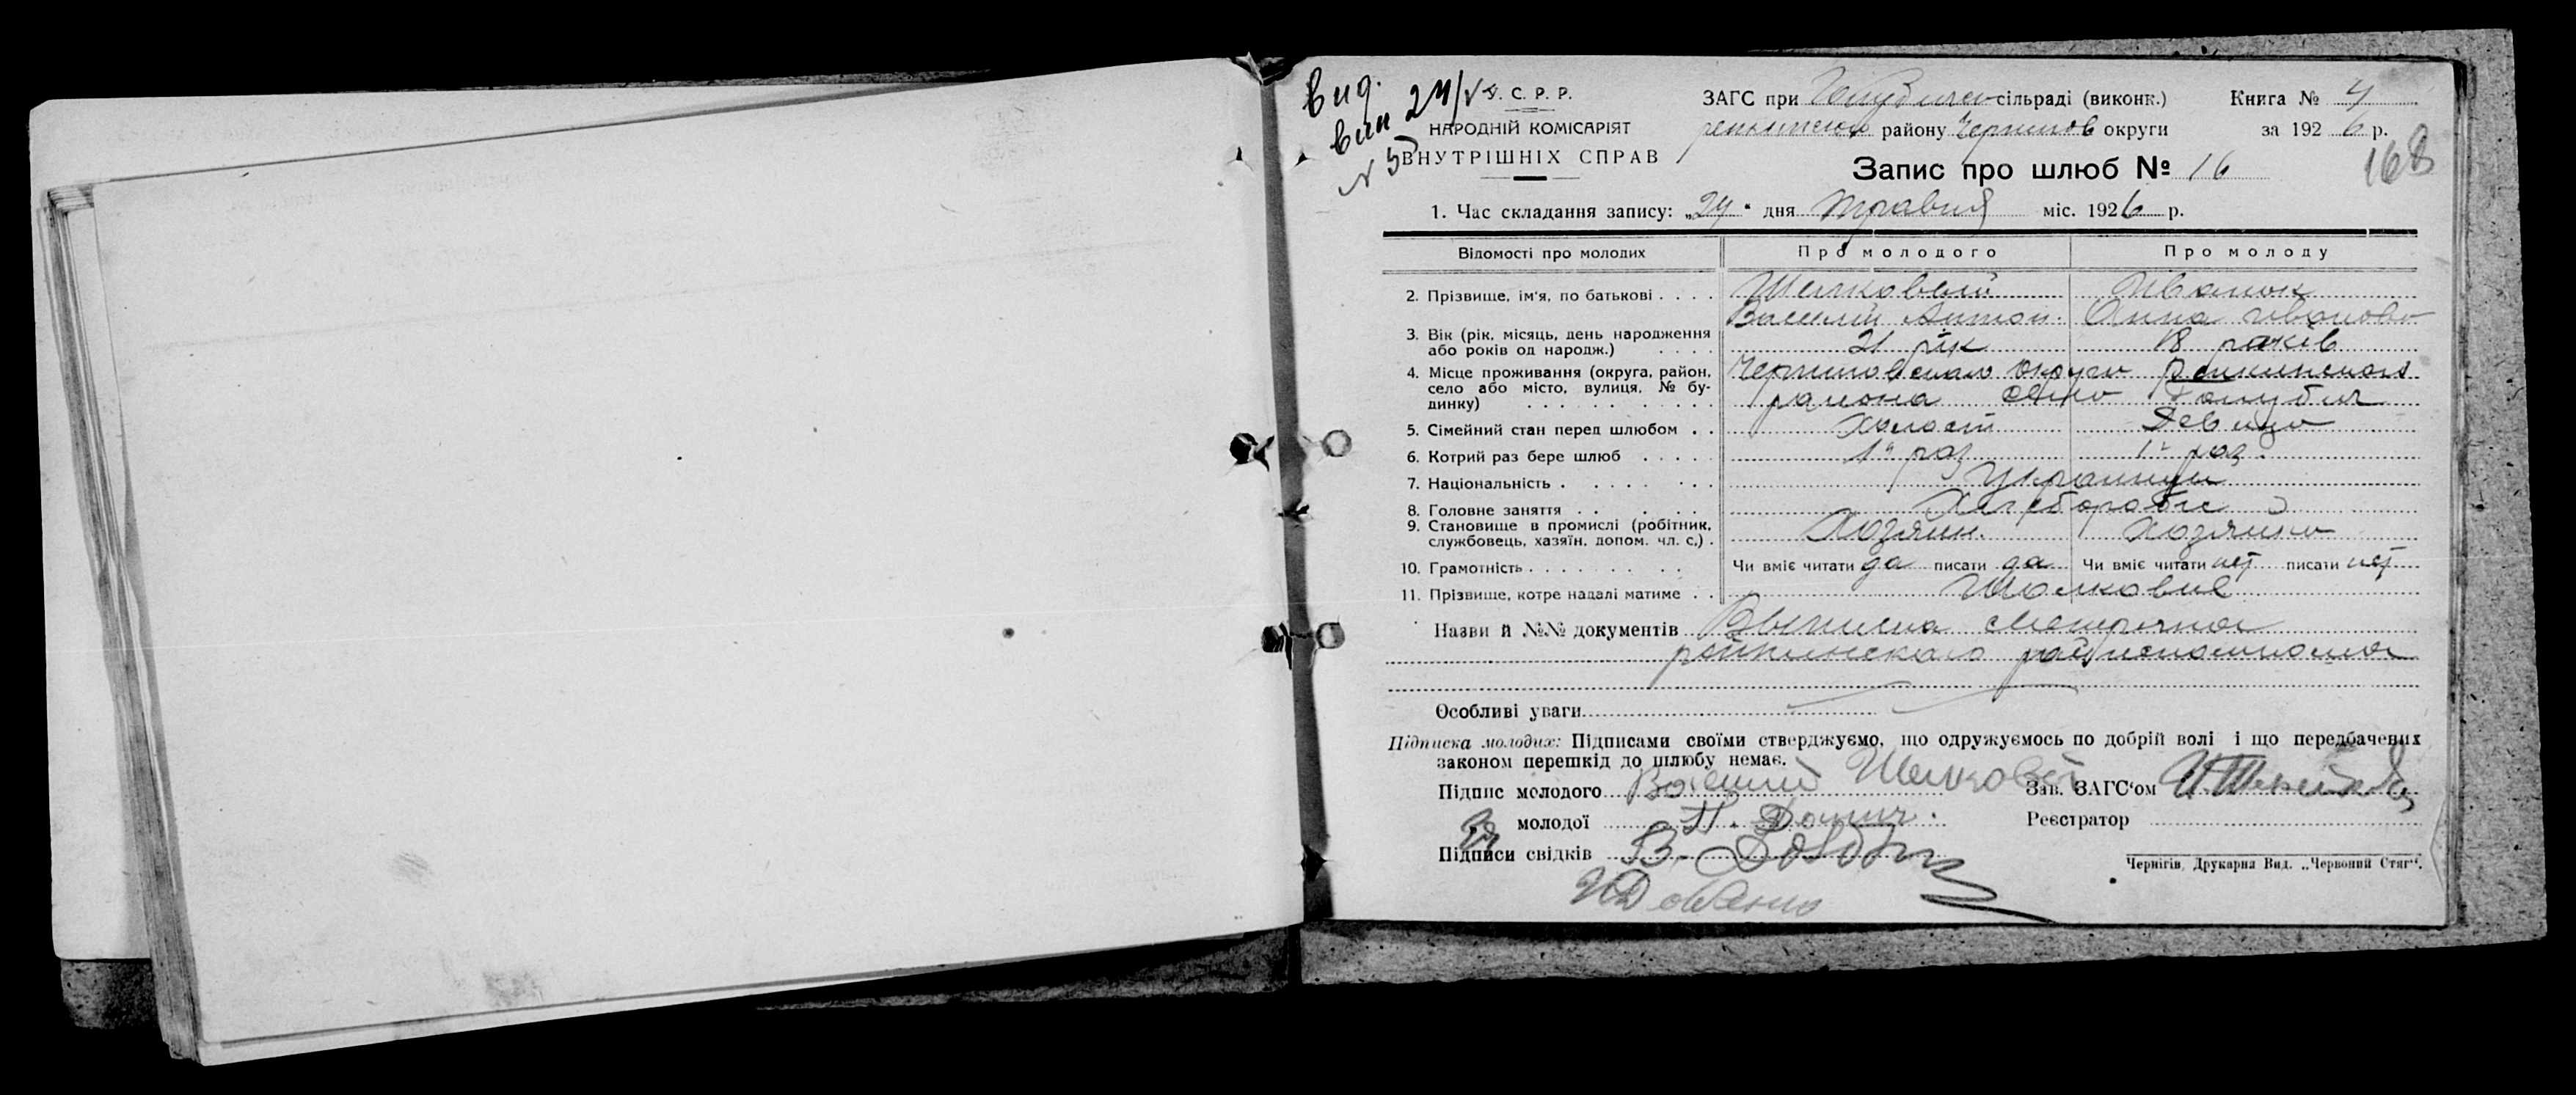 Вид.
вип 24/V
N 5
У. С. Р. Р.
НАРОДНІЙ КОМІСАРІЯТ
ВНУТРІШНІХ СПРАВ
ЗАГС при сільраді (виконк.) Книга № 4
району Чернигов округи за 1926 р.
168
Запис про шлюб № 16
1. Час складання запису: „24" дня Травня міс. 1926 р.
Відомості про молодих Про молодого Про молоду
2. Прізвище, ім'я, по батькові . . . . Шелковый Иванок
Василий Антон. Анна Иванова
3. Вік (рік, місяць, день народження
або років од народж.) . . . . 21 рік 18 рокив
4. Місце проживання (округа, район,
село або місто, вулиця, № бу-
динку) . . . . . . . . . Черниговского округи Репкинского
района село Голубичи
5. Сімейний стан перед шлюбом . . Холост Девица
6. Котрий раз бере шлюб . . . . . 1й раз 1й раз.
7. Національність . . . . . . . . Украинцы
8. Головне заняття . . . . . . Хлеборобы
9. Становище в промислі (робітник,
службовець, хазяїн, допом. чл. с.) . Хозяин. Хозяйка
10. Грамотність . . . . . . . . Чи вміє читати да писати да Чи вміє читати нет писати нет
11. Прізвище, котре надалі матиме . .
Назви й №№ документів Выписка метрична
репкинскаго райисполкома
Особливі уваги
Підписка молодих: Підписами своїми стверджуємо, що одружуємось по добрій волі і що передбачених
законом перешкід до шлюбу немає.
Підпис молодого Василий Шелковый Зав. ЗАГС'ом
за молодої Реєстратор
Підписи свідків В.
Чернігів, Друкарня Вид. „Червоний Стяг".